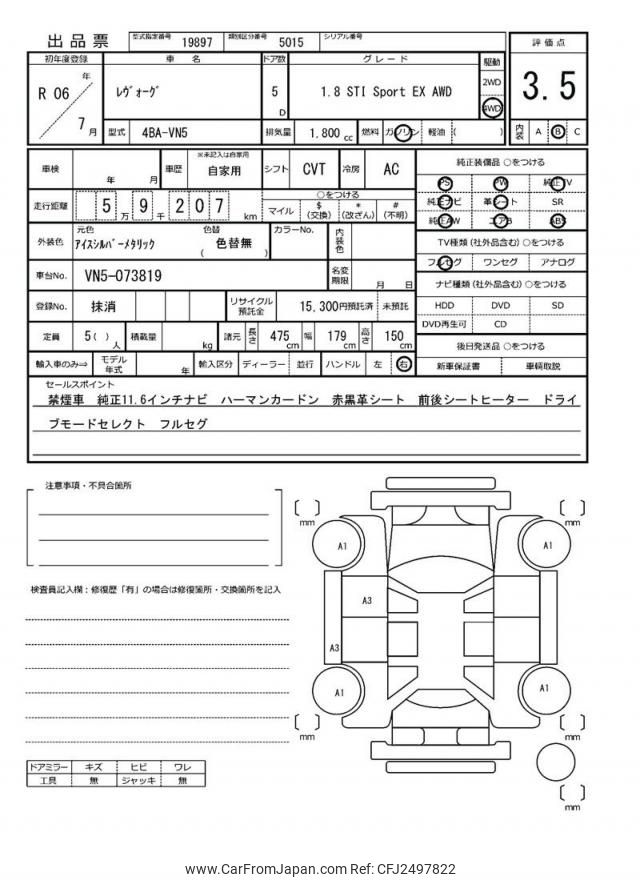 出品票 型式指定番号 19897 類別区分番号 5015 シリアル番号
初年度登録 車名 ドア数 グレード 駆動 評価点
R 06 年 7 月 レヴォーグ 5 D 1.8 STI Sport EX AWD 2WD 4WD 3.5
型式 4BA-VN5 排気量 1.800 cc 燃料 ガソリン 軽油 ( ) 内装 A B C
車検 年 月 車歴 ※未記入は自家用 自家用 シフト CVT 冷房 AC 純正装備品 ○をつける
PS PW 純正TV
走行距離 5 万 9 千 2 0 7 km ○をつける 純正ナビ 革シート SR
マイル $ (交換) * (改ざん) # (不明) 純正AW エアB ABS
外装色 元色 アイスシルバーメタリック 色替 ( 色替無 ) カラーNo. 内装色 TV種類(社外品含む)○をつける
フルセグ ワンセグ アナログ
車台No. VN5-073819 名変期限 月 日 ナビ種類(社外品含む)○をつける
登録No. 抹消 リサイクル預託金 15,300円預託済 未預託 HDD DVD SD
DVD再生可 CD
定員 5( ) 人 積載量 kg 諸元 長さ 475 cm 幅 179 cm 高さ 150 cm 後日発送品 ○をつける
輸入車のみ⇒ モデル年式 年 輸入区分 ディーラー 並行 ハンドル 左 右 新車保証書 車輌取説
セールスポイント
禁煙車 純正11.6インチナビ ハーマンカードン 赤黒革シート 前後シートヒーター ドライ
ブモードセレクト フルセグ
注意事項・不具合箇所
検査員記入欄：修復歴「有」の場合は修復箇所・交換箇所を記入
〔 〕 mm 〔 〕 mm
A1 A1
A3
A3
A1 A1
〔 〕 mm 〔 〕 mm
〔 〕 mm
ドアミラー キズ ヒビ ワレ
工具 無 ジャッキ 無
www.CarFromJapan.com Ref: CFJ2497822